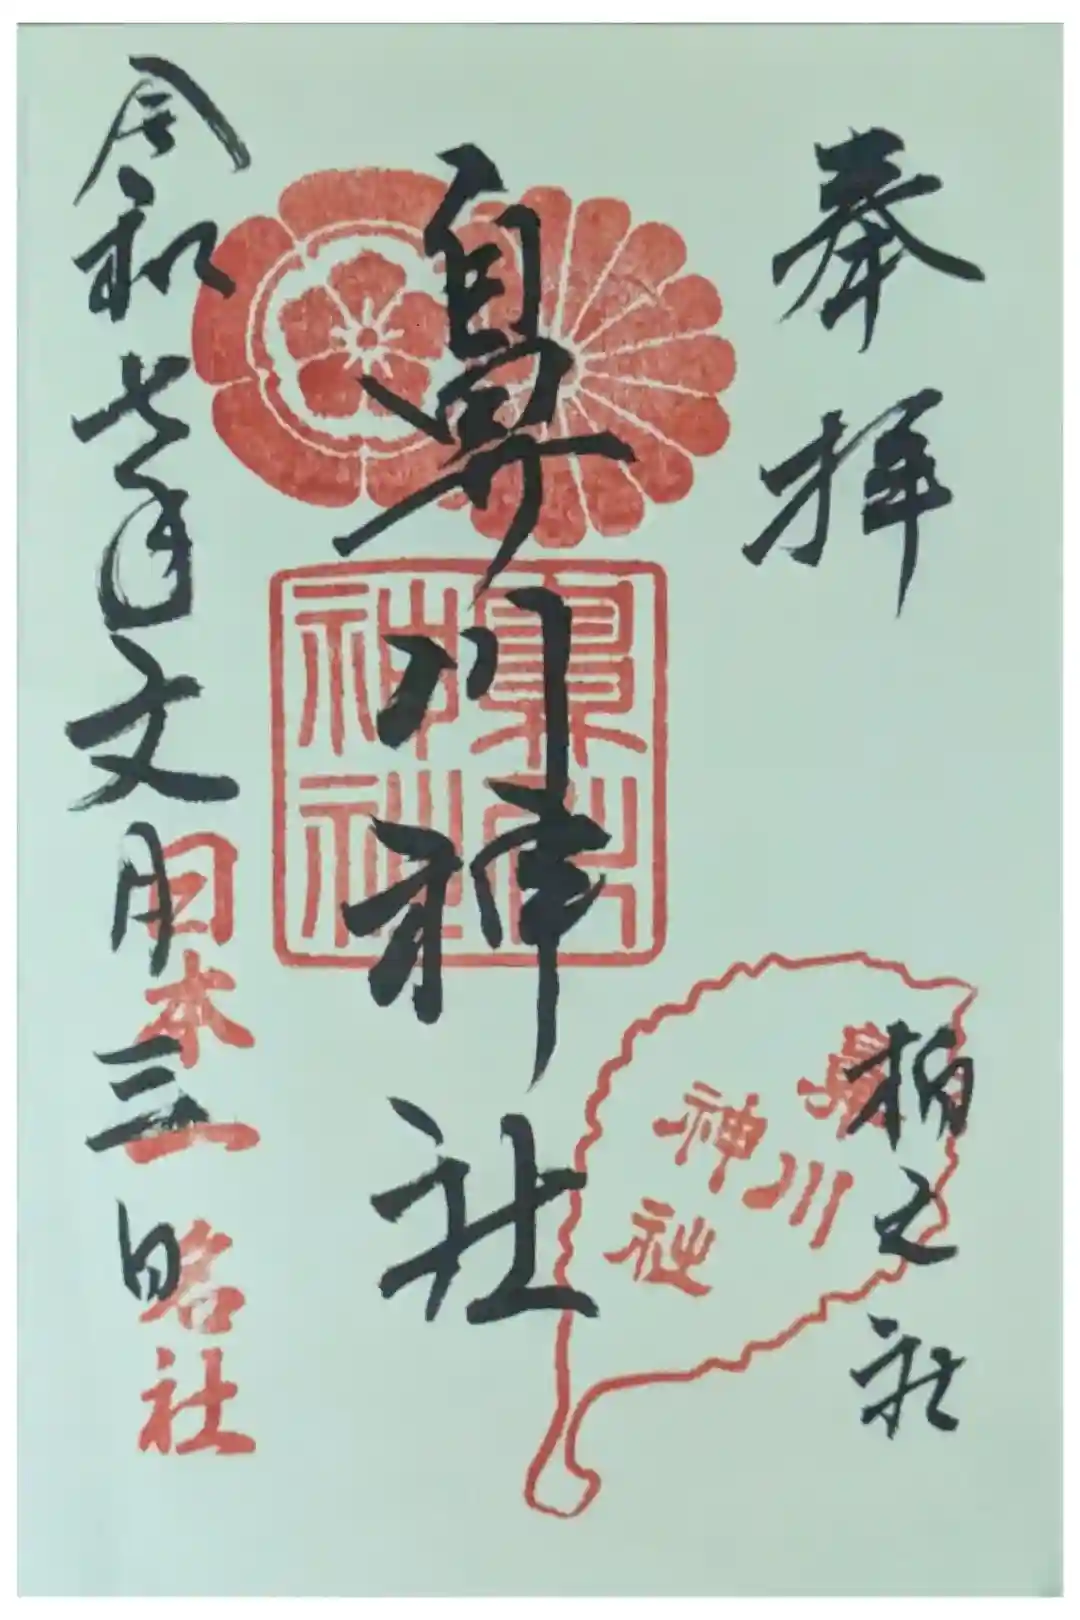 奉拝
柏之社
鼻川神社
鼻川
神社
鼻川
神社
令和七年文月三日
日本一名社